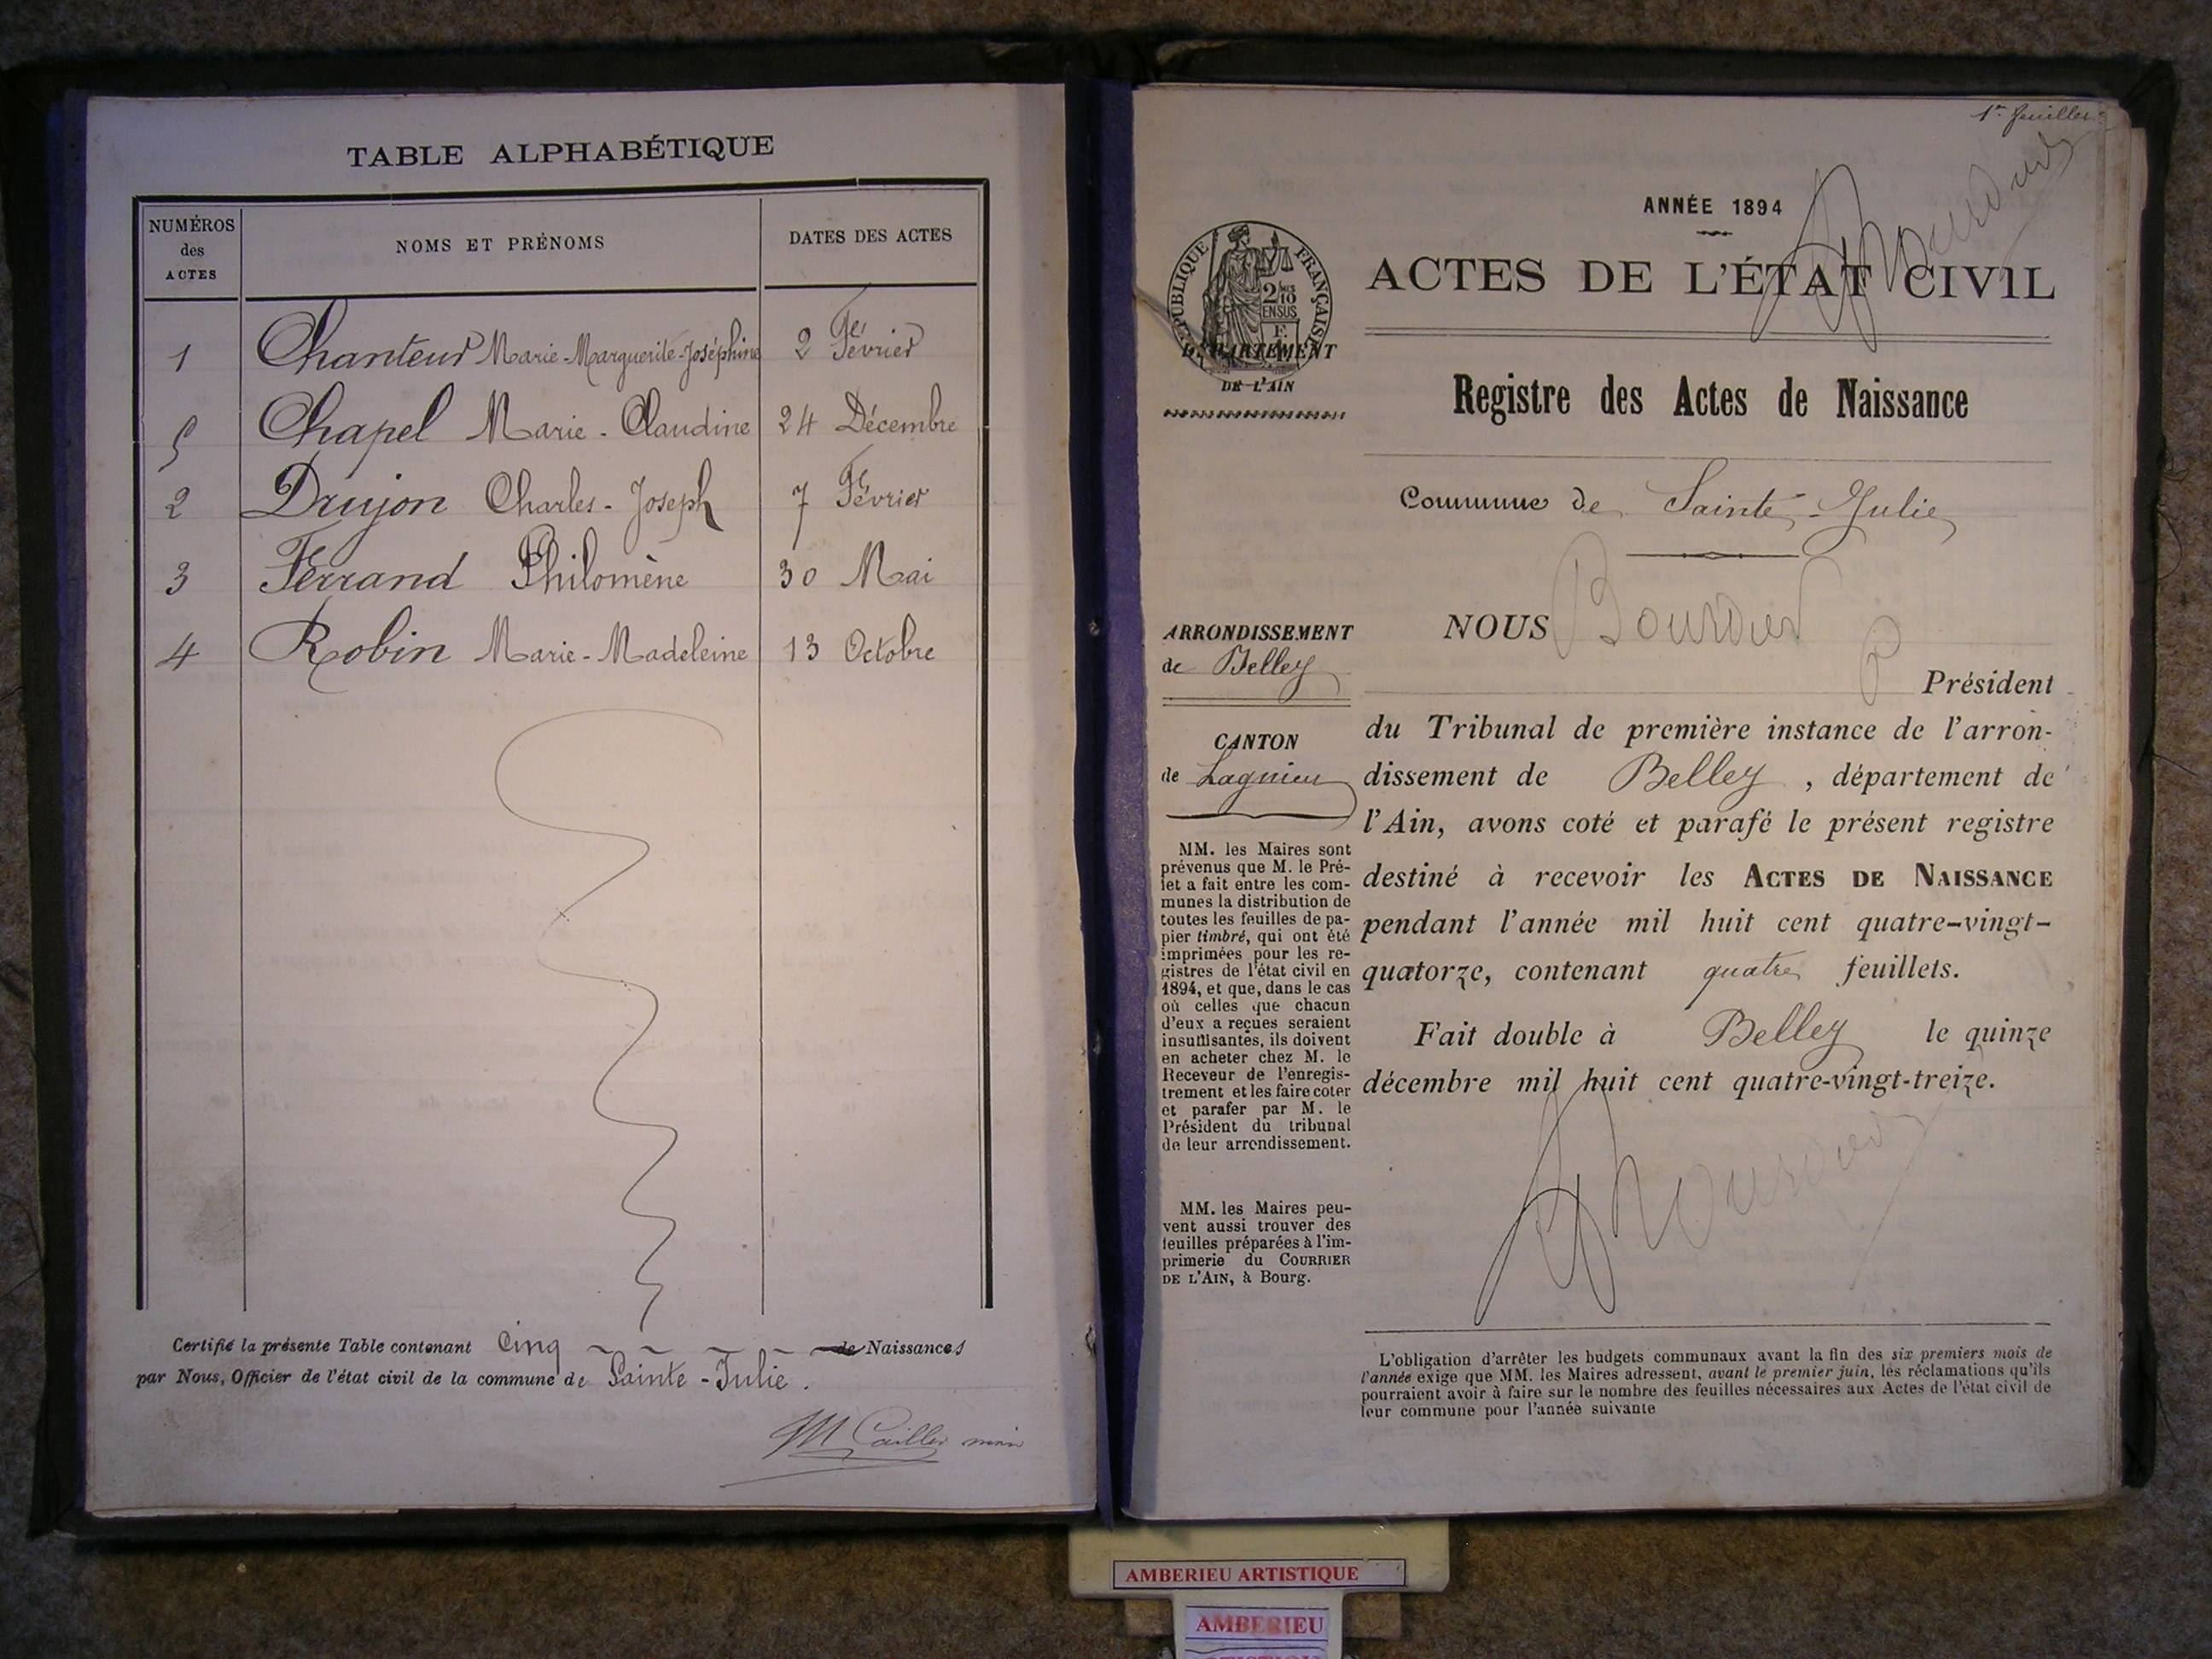 TABLE ALPHABÉTIQUE
NUMÉROS des ACTES NOMS ET PRÉNOMS DATES DES ACTES
1 Chanteur Marie-Marguerite-Joséphine 2 Février
5 Chapel Marie-Claudine 24 Décembre
2 Drujon Charles-Joseph 7 Février
3 Ferrand Philomène 30 Mai
4 Robin Marie-Madeleine 13 Octobre
Certifié la présente Table contenant Cinq de Naissances
par Nous, Officier de l'état civil de la commune de Sainte-Julie.
M Cailler
1er feuillet
ANNÉE 1894
RÉPUBLIQUE FRANÇAISE
2/10
EN SUS
ACTES DE L'ÉTAT CIVIL
DÉPARTEMENT
DE L'AIN
Registre des Actes de Naissance
Commune de Sainte-Julie
ARRONDISSEMENT
de Belley
CANTON
de Lagnieu
MM. les Maires sont
prévenus que M. le Pré-
fet a fait entre les com-
munes la distribution de
toutes les feuilles de pa-
pier timbré, qui ont été
imprimées pour les re-
gistres de l'état civil en
1894, et que, dans le cas
où celles que chacun
d'eux a reçues seraient
insuffisantes, ils doivent
en acheter chez M. le
Receveur de l'enregis-
trement et les faire coter
et parafer par M. le
Président du tribunal
de leur arrondissement.
MM. les Maires peu-
vent aussi trouver des
feuilles préparées à l'im-
primerie du COURRIER
DE L'AIN, à Bourg.
NOUS Bourdin
P Président
du Tribunal de première instance de l'arron-
dissement de Belley, département de
l'Ain, avons coté et parafé le présent registre
destiné à recevoir les ACTES DE NAISSANCE
pendant l'année mil huit cent quatre-vingt-
quatorze, contenant quatre feuillets.
Fait double à Belley le quinze
décembre mil huit cent quatre-vingt-treize.
L'obligation d'arrêter les budgets communaux avant la fin des six premiers mois de
l'année exige que MM. les Maires adressent, avant le premier juin, les réclamations qu'ils
pourraient avoir à faire sur le nombre des feuilles nécessaires aux Actes de l'état civil de
leur commune pour l'année suivante
AMBERIEU ARTISTIQUE
AMBERIEU
ARTISTIQUE